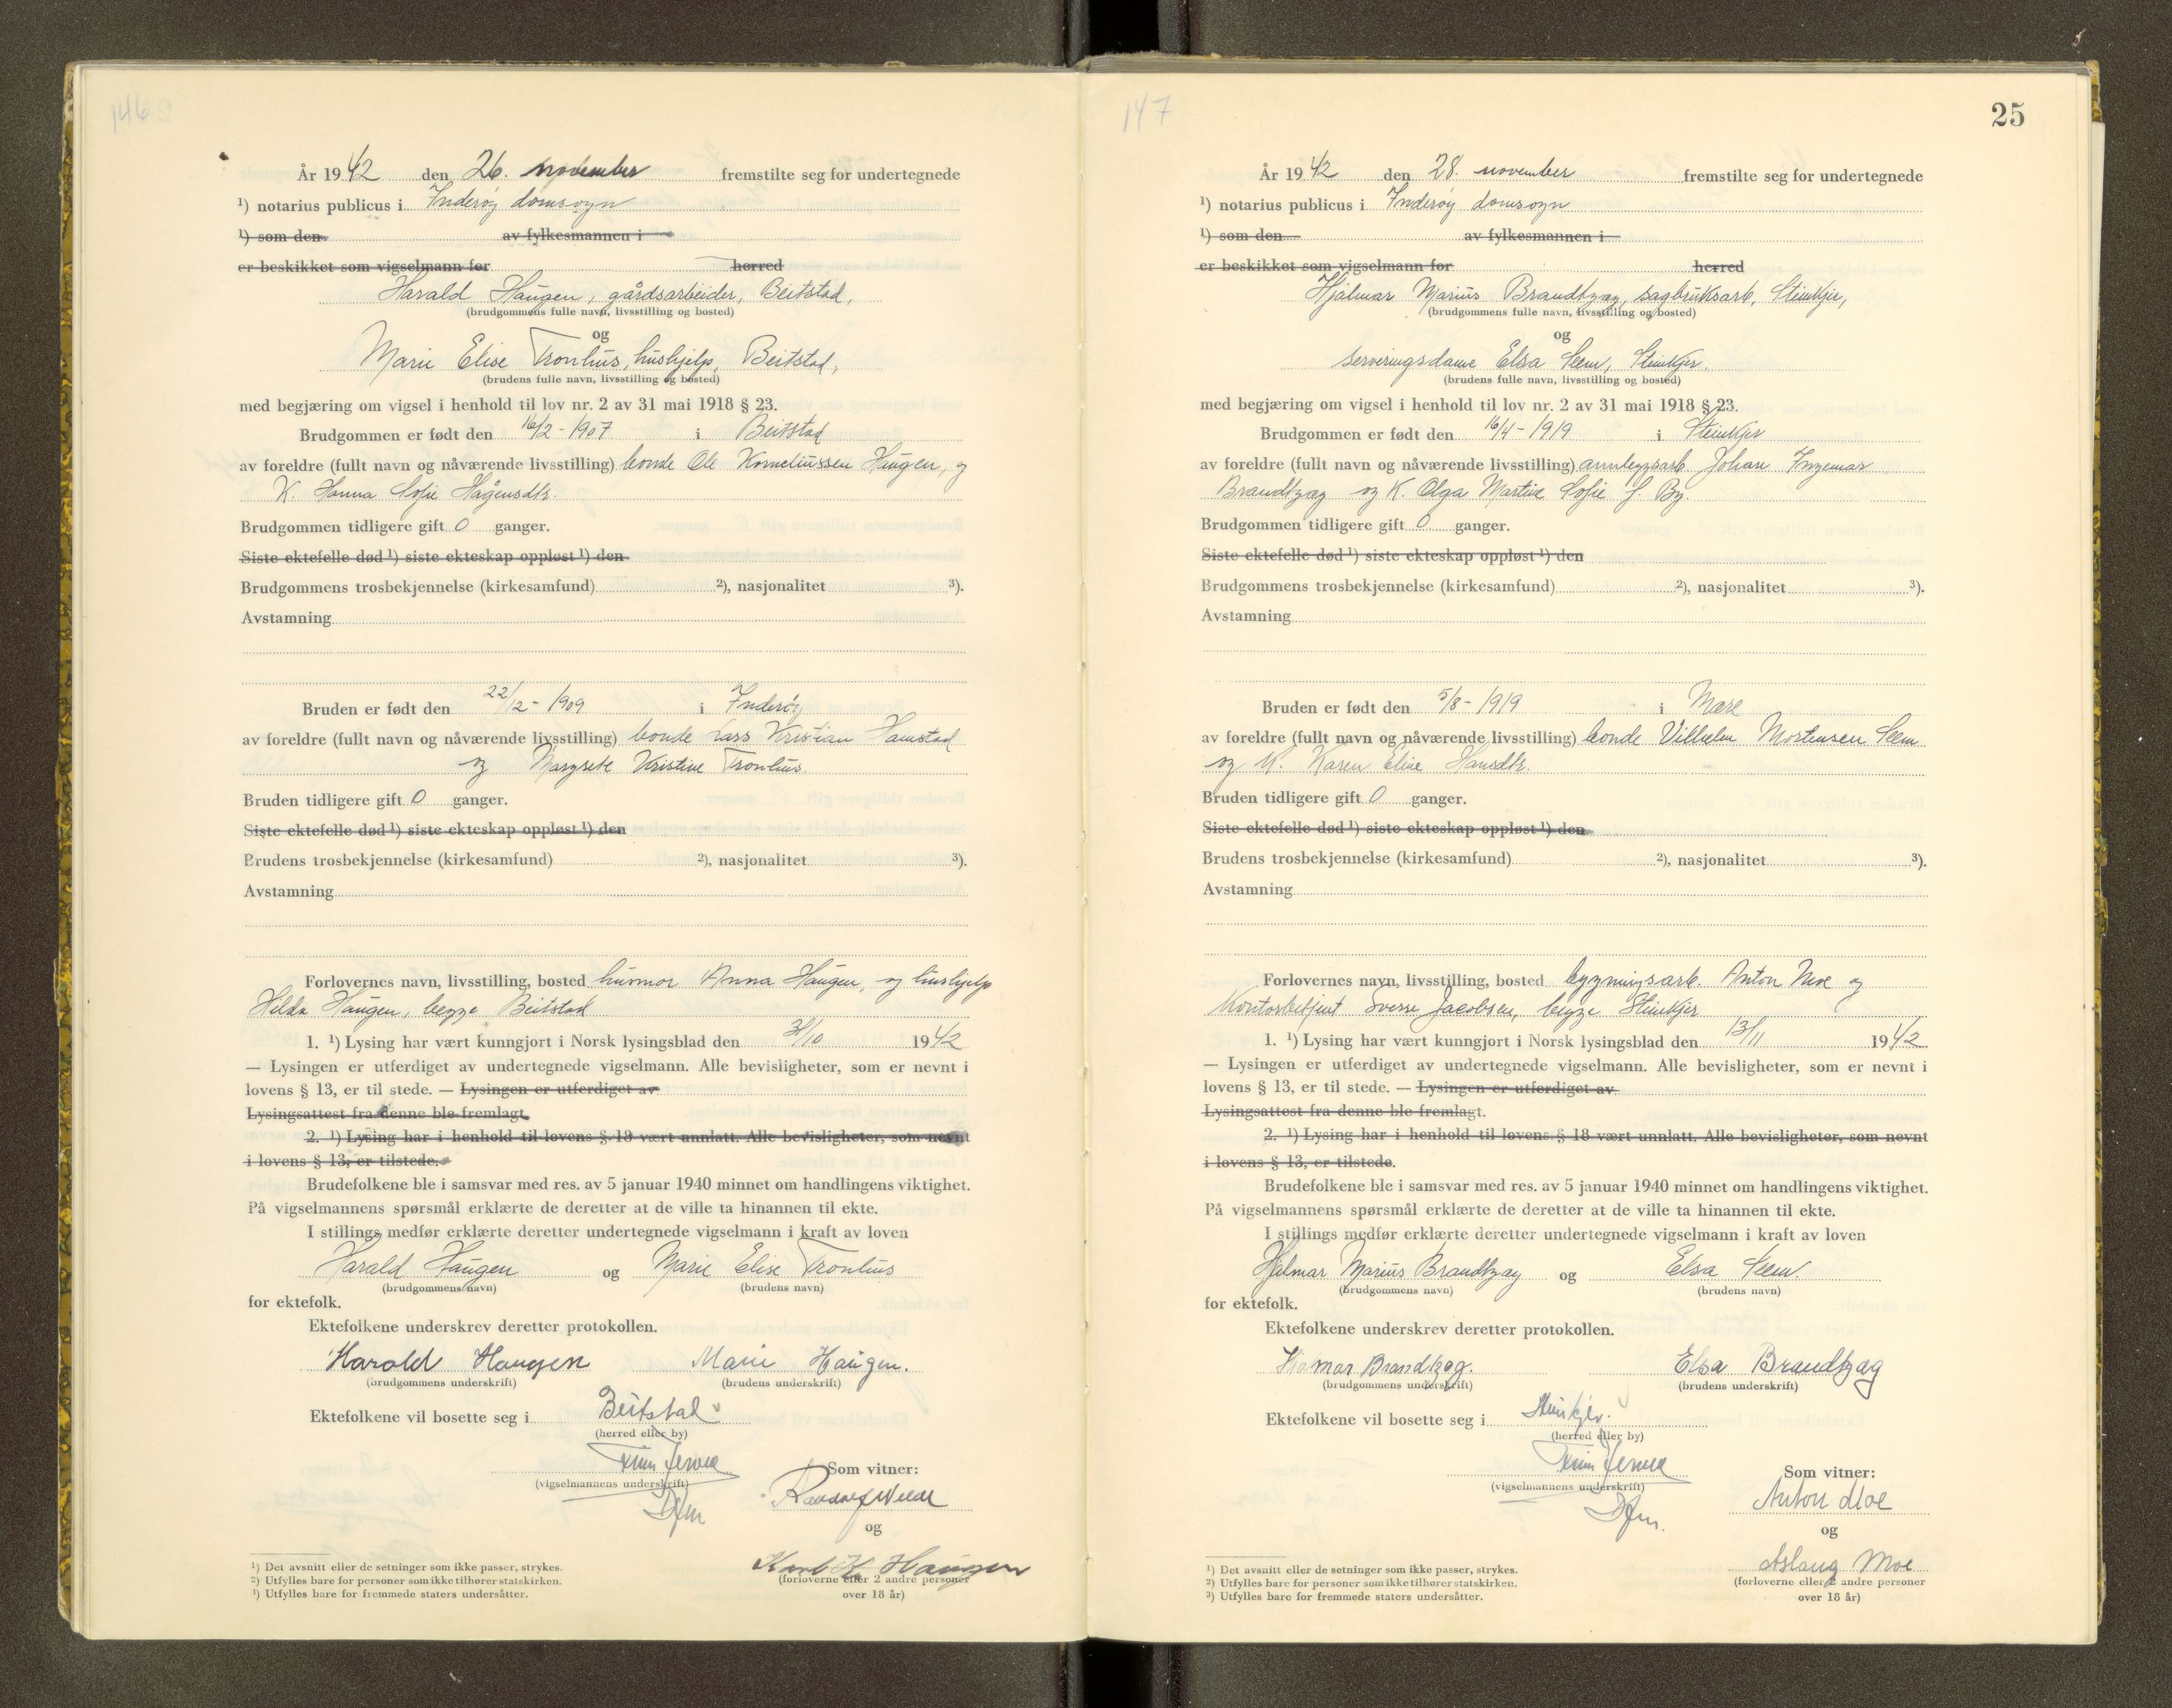 146
År 1942 den 26. november fremstilte seg for undertegnede
¹) notarius publicus i Inderøy domsogn
¹) som den av fylkesmannen i
er beskikket som vigselmann for herred
Harald Haugen, gårdsarbeider, Beitstad,
(brudgommens fulle navn, livsstilling og bosted)
og
Marie Elise Tronhus, hushjelp, Beitstad,
(brudens fulle navn, livsstilling og bosted)
med begjæring om vigsel i henhold til lov nr. 2 av 31 mai 1918 § 23.
Brudgommen er født den 16/2 - 1907 i Beitstad
av foreldre (fullt navn og nåværende livsstilling) bonde Ole Korneliussen Haugen, og
K. Hanna Sofie Hågensdtr.
Brudgommen tidligere gift 0 ganger.
Siste ektefelle død ¹) siste ekteskap oppløst ¹) den
Brudgommens trosbekjennelse (kirkesamfund) ²), nasjonalitet ³).
Avstamning
Bruden er født den 22/12 - 1909 i Inderøy
av foreldre (fullt navn og nåværende livsstilling) bonde Lars Kristian Hamstad
og Margrete Kristine Tronhus.
Bruden tidligere gift 0 ganger.
Siste ektefelle død ¹) siste ekteskap oppløst ¹) den
Brudens trosbekjennelse (kirkesamfund) ²), nasjonalitet ³).
Avstamning
Forlovernes navn, livsstilling, bosted husmor Anna Haugen, og hushjelp
Hilda Haugen, begge Beitstad
1. ¹) Lysing har vært kunngjort i Norsk lysingsblad den 31/10 1942
— Lysingen er utferdiget av undertegnede vigselmann. Alle bevisligheter, som er nevnt i
lovens § 13, er til stede. — Lysingen er utferdiget av
Lysingsattest fra denne ble fremlagt.
2. ¹) Lysing har i henhold til lovens § 18 vært unnlatt. Alle bevisligheter, som nevnt
i lovens § 13, er tilstede.
Brudefolkene ble i samsvar med res. av 5 januar 1940 minnet om handlingens viktighet.
På vigselmannens spørsmål erklærte de deretter at de ville ta hinannen til ekte.
I stillings medfør erklærte deretter undertegnede vigselmann i kraft av loven
Harald Haugen og Marie Elise Tronhus
(brudgommens navn) (brudens navn)
for ektefolk.
Ektefolkene underskrev deretter protokollen.
Harald Haugen Marie Haugen.
(brudgommens underskrift) (brudens underskrift)
Ektefolkene vil bosette seg i Beitstad
(herred eller by)
Som vitner:
(vigselmannens underskrift)
Dfm
og
Karl K. Haugen
(forloverne eller 2 andre personer
over 18 år)
¹) Det avsnitt eller de setninger som ikke passer, strykes.
²) Utfylles bare for personer som ikke tilhører statskirken.
¹) Utfylles bare for fremmede staters undersåtter.
147
25
År 1942 den 28. november fremstilte seg for undertegnede
¹) notarius publicus i Inderøy domsogn
¹) som den av fylkesmannen i
er beskikket som vigselmann for herred
Hjalmar Marius Brandtzæg, sagbruksarb., Steinkjer,
(brudgommens fulle navn, livsstilling og bosted)
og
serveringsdame Elsa Seem, Steinkjer.
(brudens fulle navn, livsstilling og bosted)
med begjæring om vigsel i henhold til lov nr. 2 av 31 mai 1918 § 23.
Brudgommen er født den 16/4 - 1919 i Steinkjer
av foreldre (fullt navn og nåværende livsstilling) annleggsarb. Johan Ingemar
Brandtzæg og K. Olga Martine Sofie f. By.
Brudgommen tidligere gift 0 ganger.
Siste ektefelle død ¹) siste ekteskap oppløst ¹) den
Brudgommens trosbekjennelse (kirkesamfund) ²), nasjonalitet ³).
Avstamning
Bruden er født den 5/8 - 1919 i Mære
av foreldre (fullt navn og nåværende livsstilling) bonde Vilhelm Mortensen Seem
og K. Karen Eline Hansdtr.
Bruden tidligere gift 0 ganger.
Siste ektefelle død ¹) siste ekteskap oppløst ¹) den
Brudens trosbekjennelse (kirkesamfund) ²), nasjonalitet ³).
Avstamning
Forlovernes navn, livsstilling, bosted bygningsarb. Anton Moe og
kontorbetjent Sverre Jacobsen, begge Steinkjer
1. ¹) Lysing har vært kunngjort i Norsk lysingsblad den 13/11 1942
— Lysingen er utferdiget av undertegnede vigselmann. Alle bevisligheter, som er nevnt i
lovens § 13, er til stede. — Lysingen er utferdiget av
Lysingsattest fra denne ble fremlagt.
2. ¹) Lysing har i henhold til lovens § 18 vært unnlatt. Alle bevisligheter, som nevnt
i lovens § 13, er tilstede.
Brudefolkene ble i samsvar med res. av 5 januar 1940 minnet om handlingens viktighet.
På vigselmannens spørsmål erklærte de deretter at de ville ta hinannen til ekte.
I stillings medfør erklærte deretter undertegnede vigselmann i kraft av loven
Hjalmar Marius Brandtzæg og Elsa Seem.
(brudgommens navn) (brudens navn)
for ektefolk.
Ektefolkene underskrev deretter protokollen.
Brandtzæg. Elsa Brandtzæg
(brudgommens underskrift) (brudens underskrift)
Ektefolkene vil bosette seg i Steinkjer.
(herred eller by)
Som vitner:
(vigselmannens underskrift)
Anton Moe
Dfm.
og
Aslaug Moe
(forloverne eller 2 andre personer
over 18 år)
¹) Det avsnitt eller de setninger som ikke passer, strykes.
²) Utfylles bare for personer som ikke tilhører statskirken.
³) Utfylles bare for fremmede staters undersåtter.